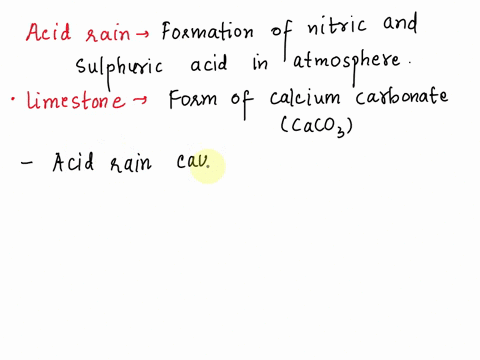 Acid rain → Formation of nitric and
sulphuric acid in atmosphere.
• Limestone → Form of calcium carbonate
(CaCO3)
- Acid rain cau